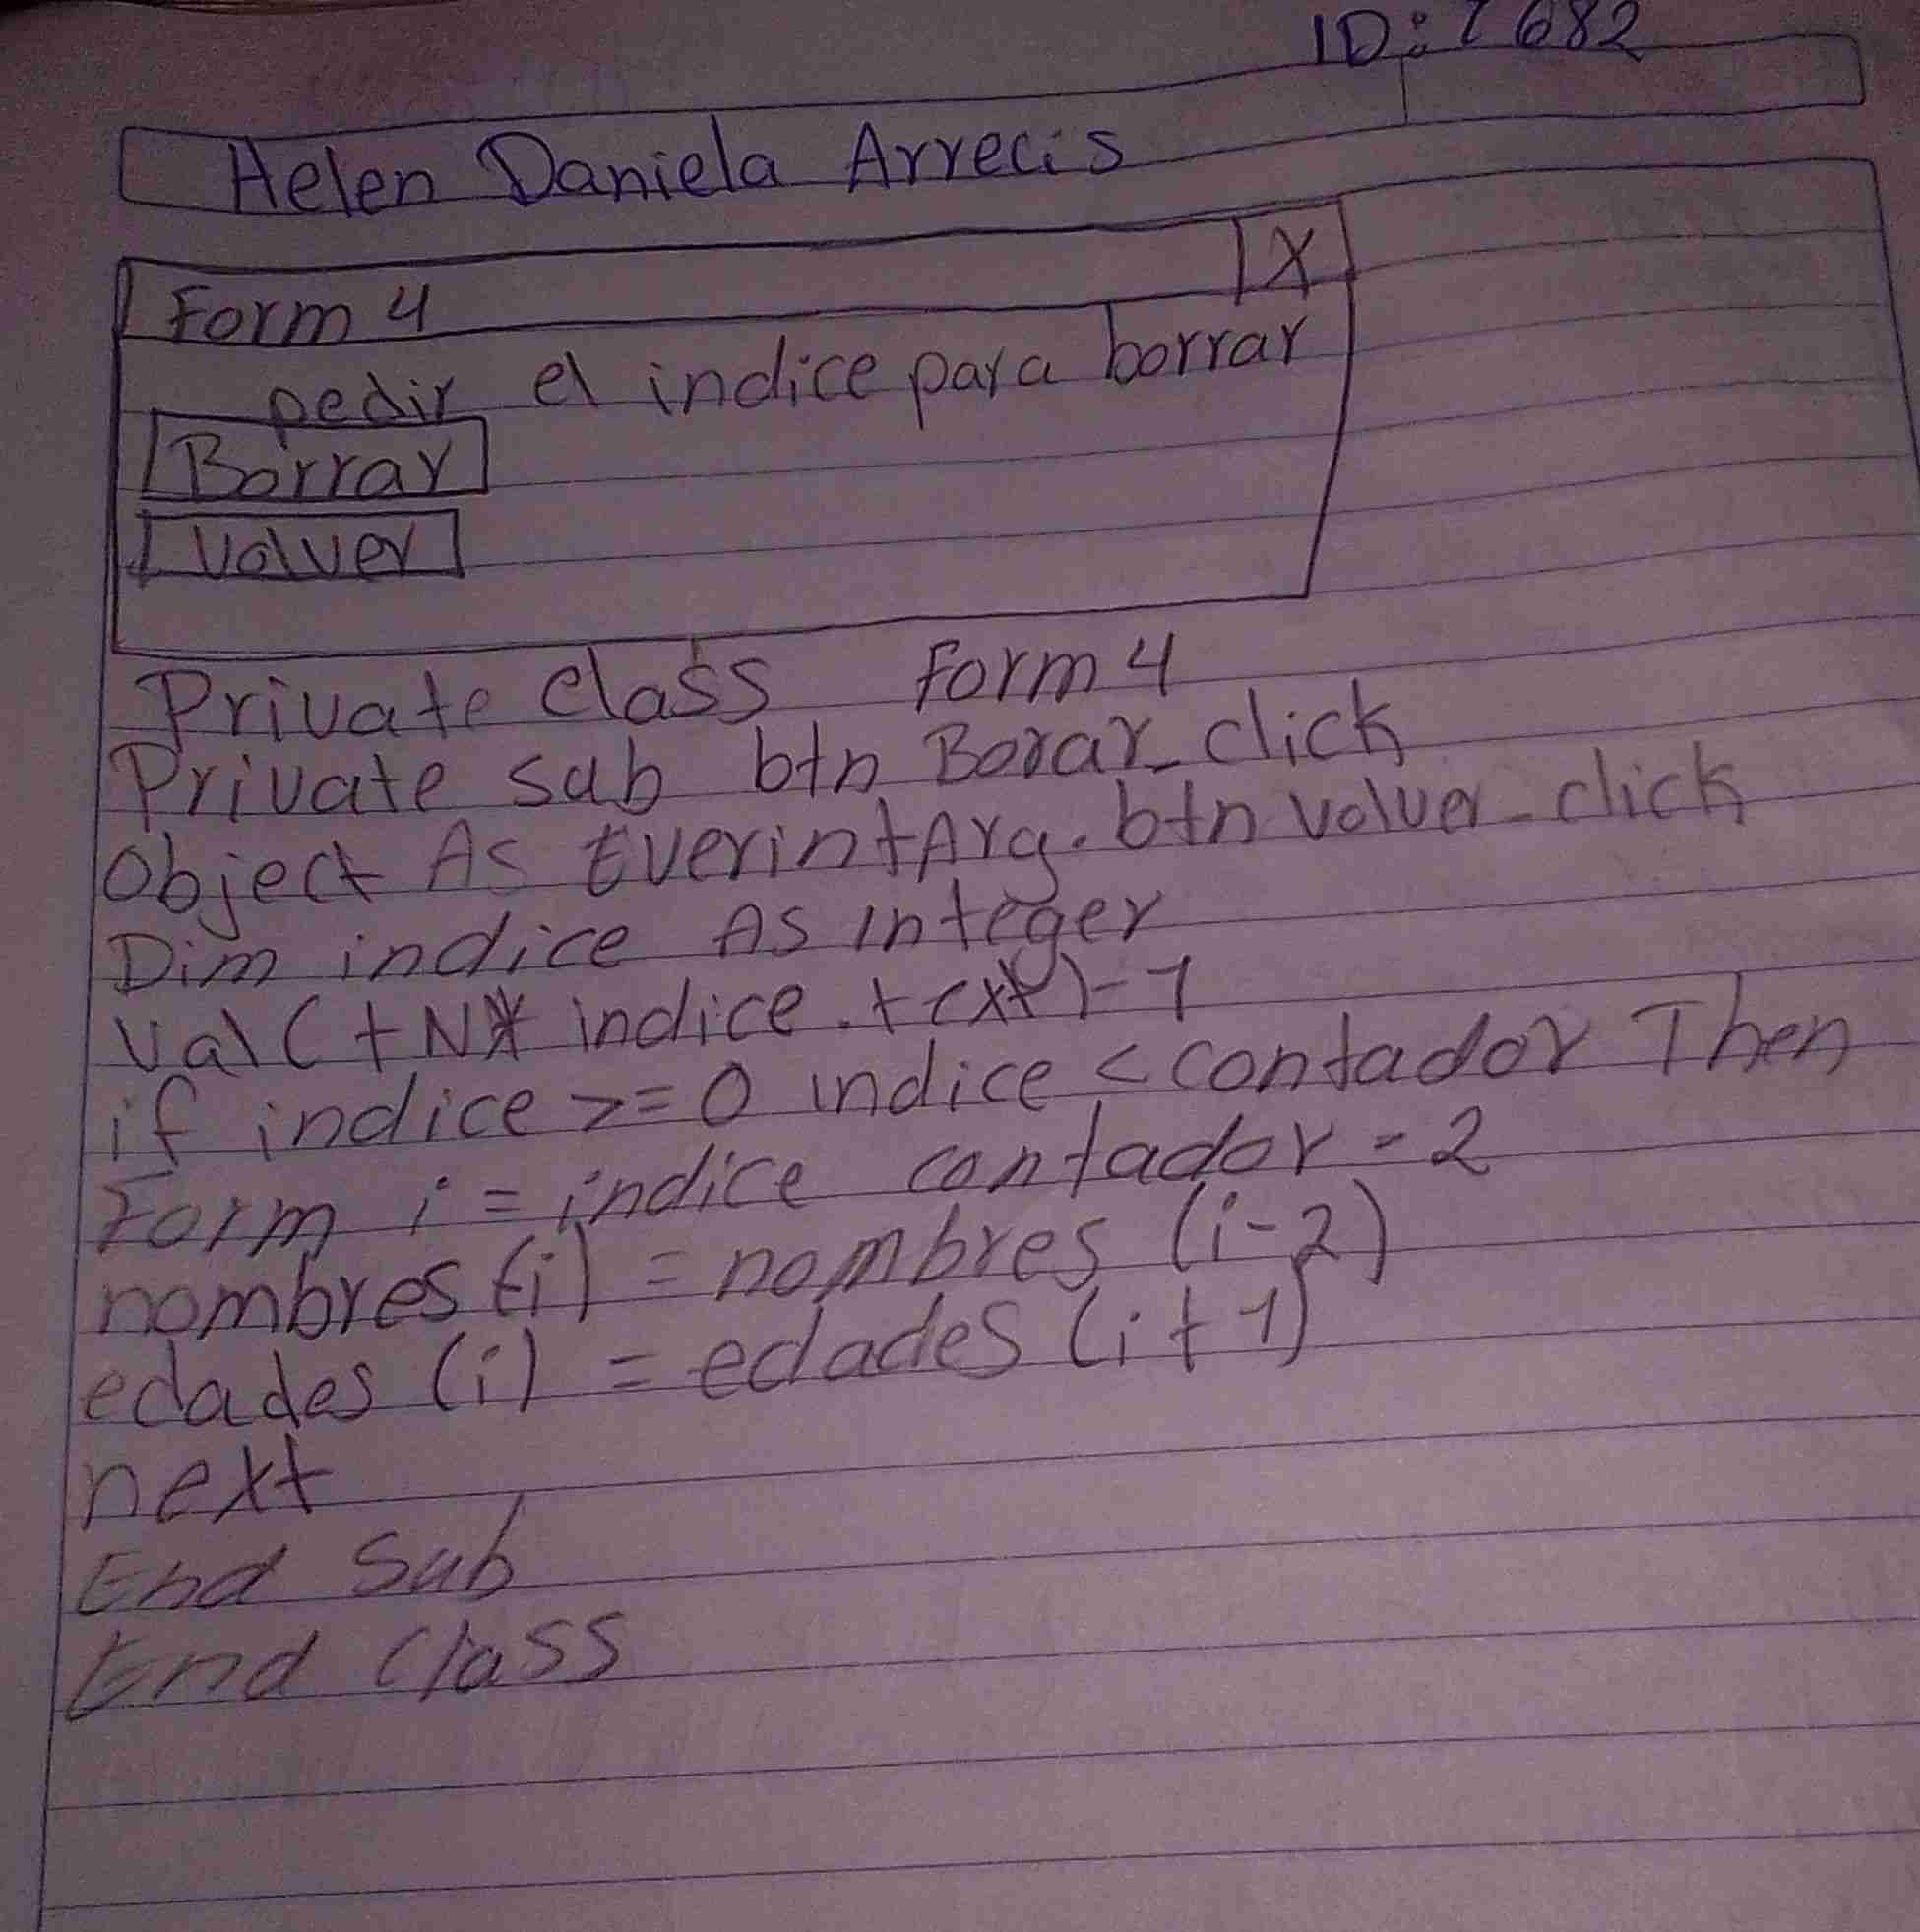 ID: 7682
Helen Daniela Arrecis
Form 4 X
pedir el indice para borrar
Borrar
Volver
Private class Form 4
Private sub btn Borar_click
Object As EverintArg. btn volver_click
Dim indice As integer
Val( indice . text)-1
if indice >= 0 indice < contador Then
Form i = indice contador - 2
nombres (i) = nombres (i-2)
edades (i) = edades (i + 1)
next
End Sub
End Class